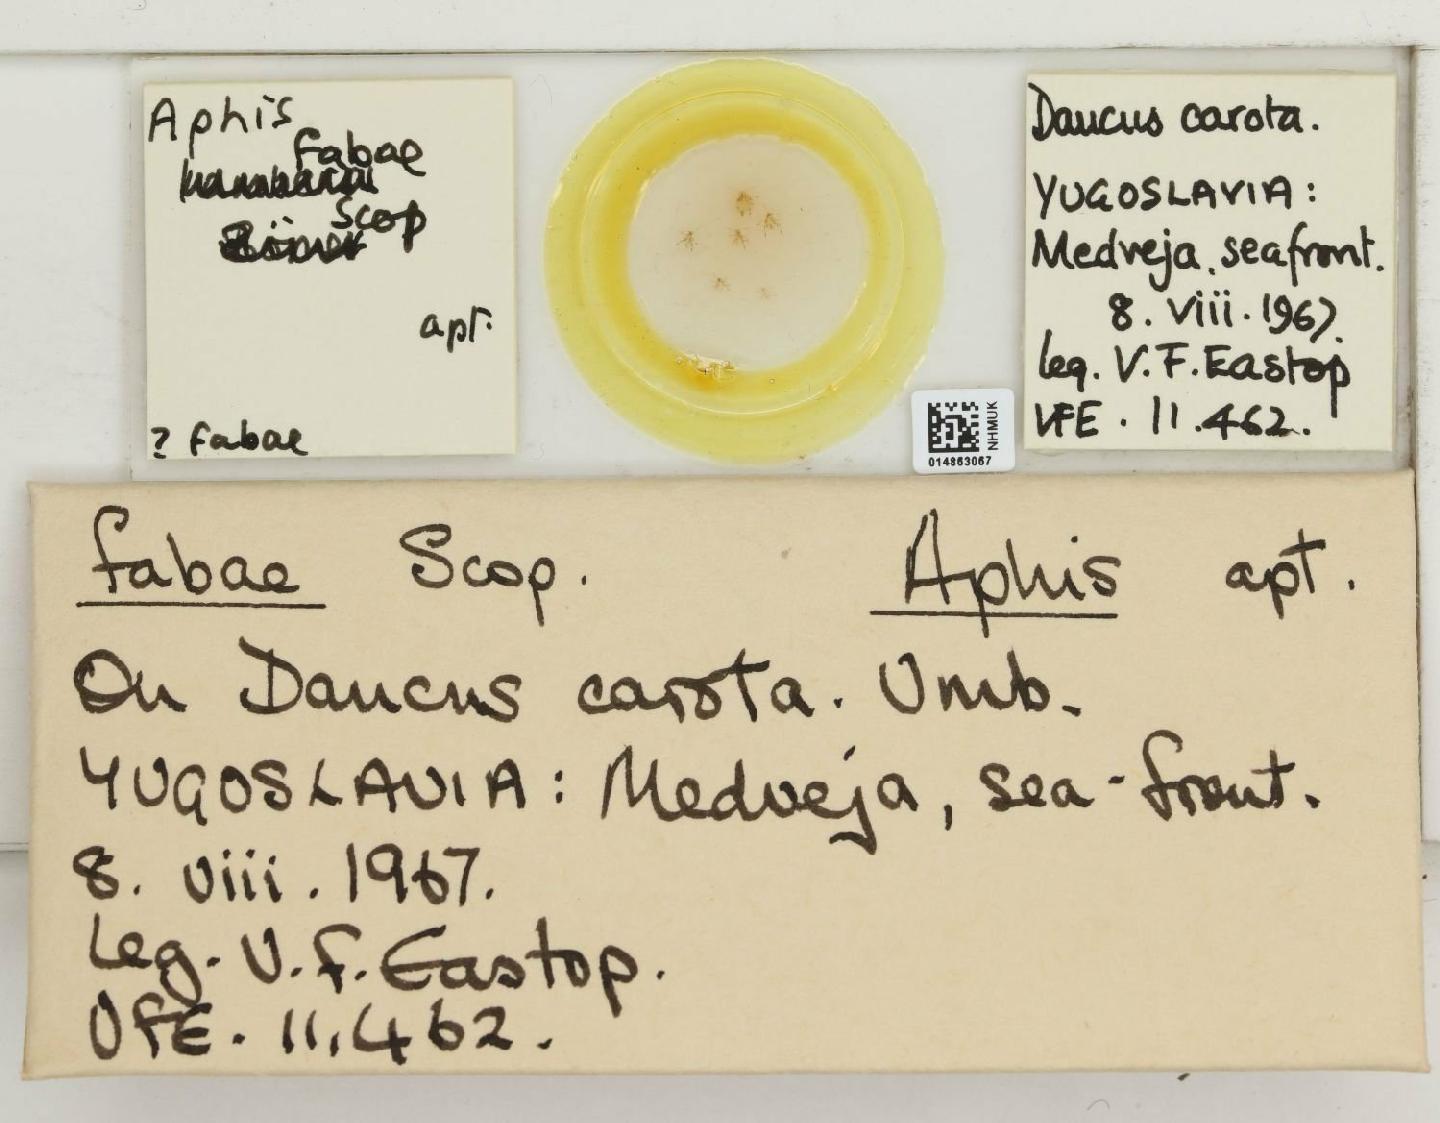 Aphis
fabae
Scop
apt.
? fabae
Daucus carota.
YUGOSLAVIA:
Medveja, seafront.
8. viii. 1967.
leg. V. F. Eastop
VFE. 11.462.
NHMUK
014863067
fabae Scop. Aphis apt.
On Daucus carota. Umb.
YUGOSLAVIA: Medveja, sea-front.
8. viii. 1967.
Leg. V. F. Eastop.
VFE. 11.462.